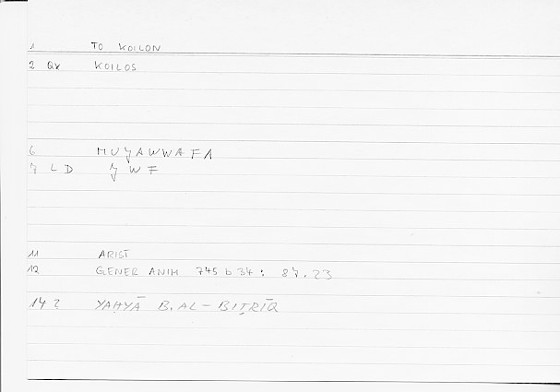 1 TO KOILON
2 Qx KOILOS
6 MUǦAWWAFA
7 LD ǦWF
11 ARIST
12 GENER ANIM 745 b 34 : 87.23
14 2 YAḤYĀ B. AL-BIṬRĪQ